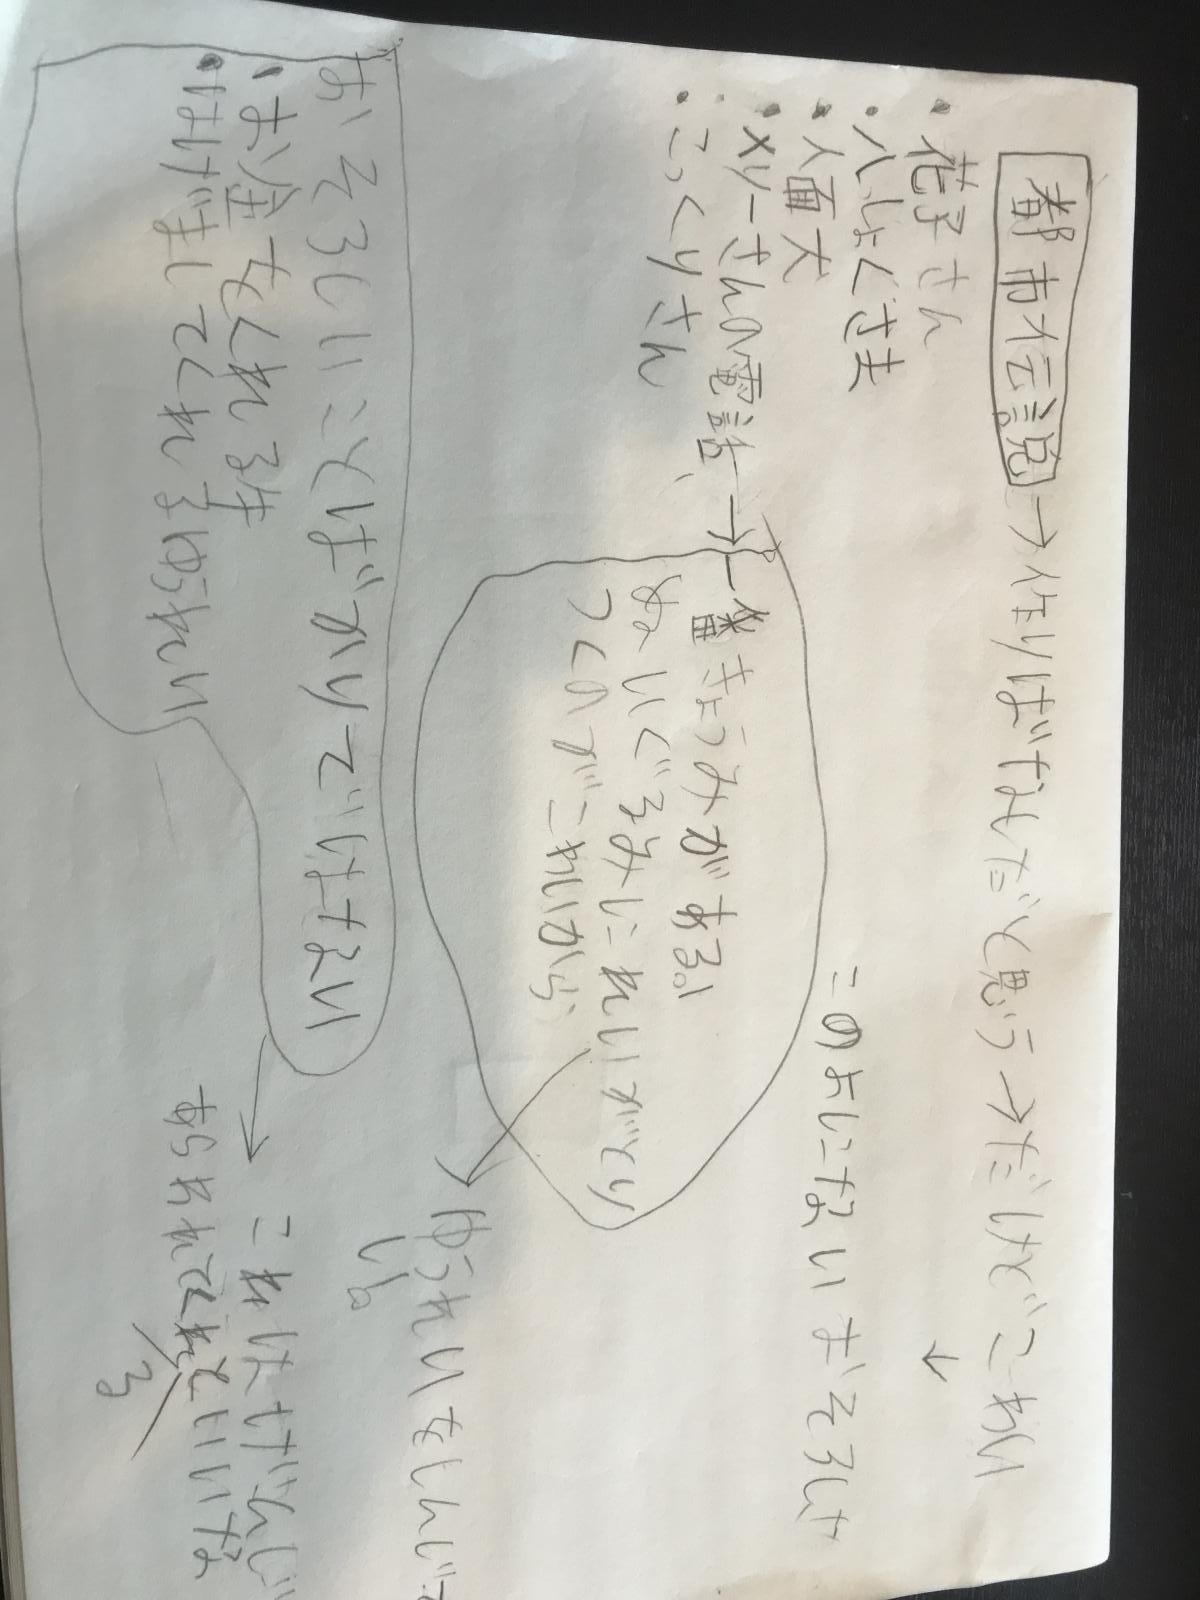 都市伝説→作りばなしだと思う→だけどこわい
↓
・花子さん
・八しょくさま
このよにないおそろしさ
・人面犬
・メリーさんの電話→一番きょうみがある。
ぬいぐるみにれいがとり
つくのがこわいから
・こっくりさん
ゆうれいをしんじて
いる。
おそろしいことばかりではない
・お金をくれる
・はげましてくれるゆうれい
これはげんじ
あらわれてくれといいな
る